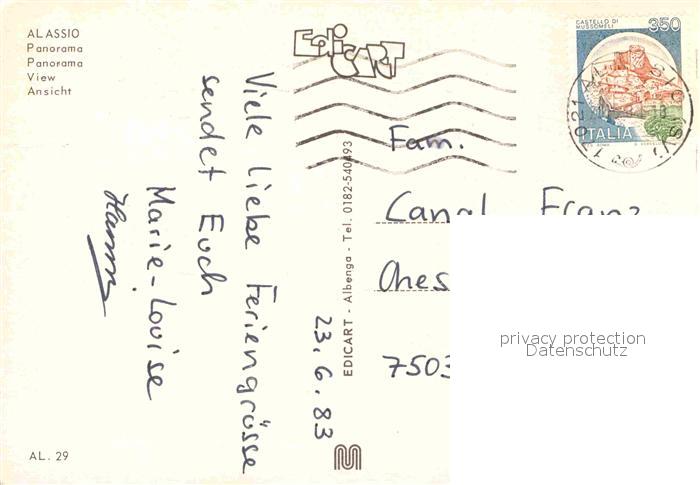 ALASSIO
Panorama
Panorama
View
Ansicht
EdiCART
CASTELLO DI
MUSSOMELI
350
ITALIA
Viele liebe Feriengrüsse
sendet Euch
Marie-Louise
23.6.83
EDICART - Albenga - Tel. 0182-540493
Fam.
Canal Franz
7503
privacy protection
Datenschutz
AL. 29